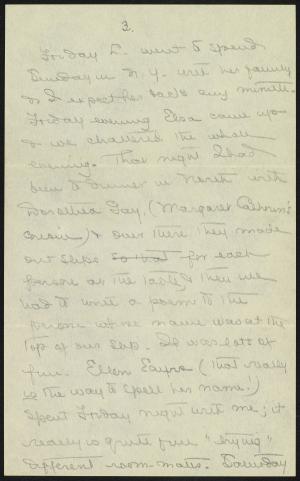 3.
Friday E. went to spend
Sunday in N. Y. with her family
& I expect her back any minute.
Friday evening Elsa came up
& we chattered the whole
evening. That night I had
been to dinner in North with
Dorothea Gay, (Margaret Calhoun's
cousin) & over there they made
out slips for each
person at the table & then we
had to write a poem to the
person whose name was at the
top of our slip. It was lots of
fun. Ellen Eayrs (that really
is the way to spell her name.)
spent Friday night with me; it
really is quite fun "trying"
different room-mates. Saturday